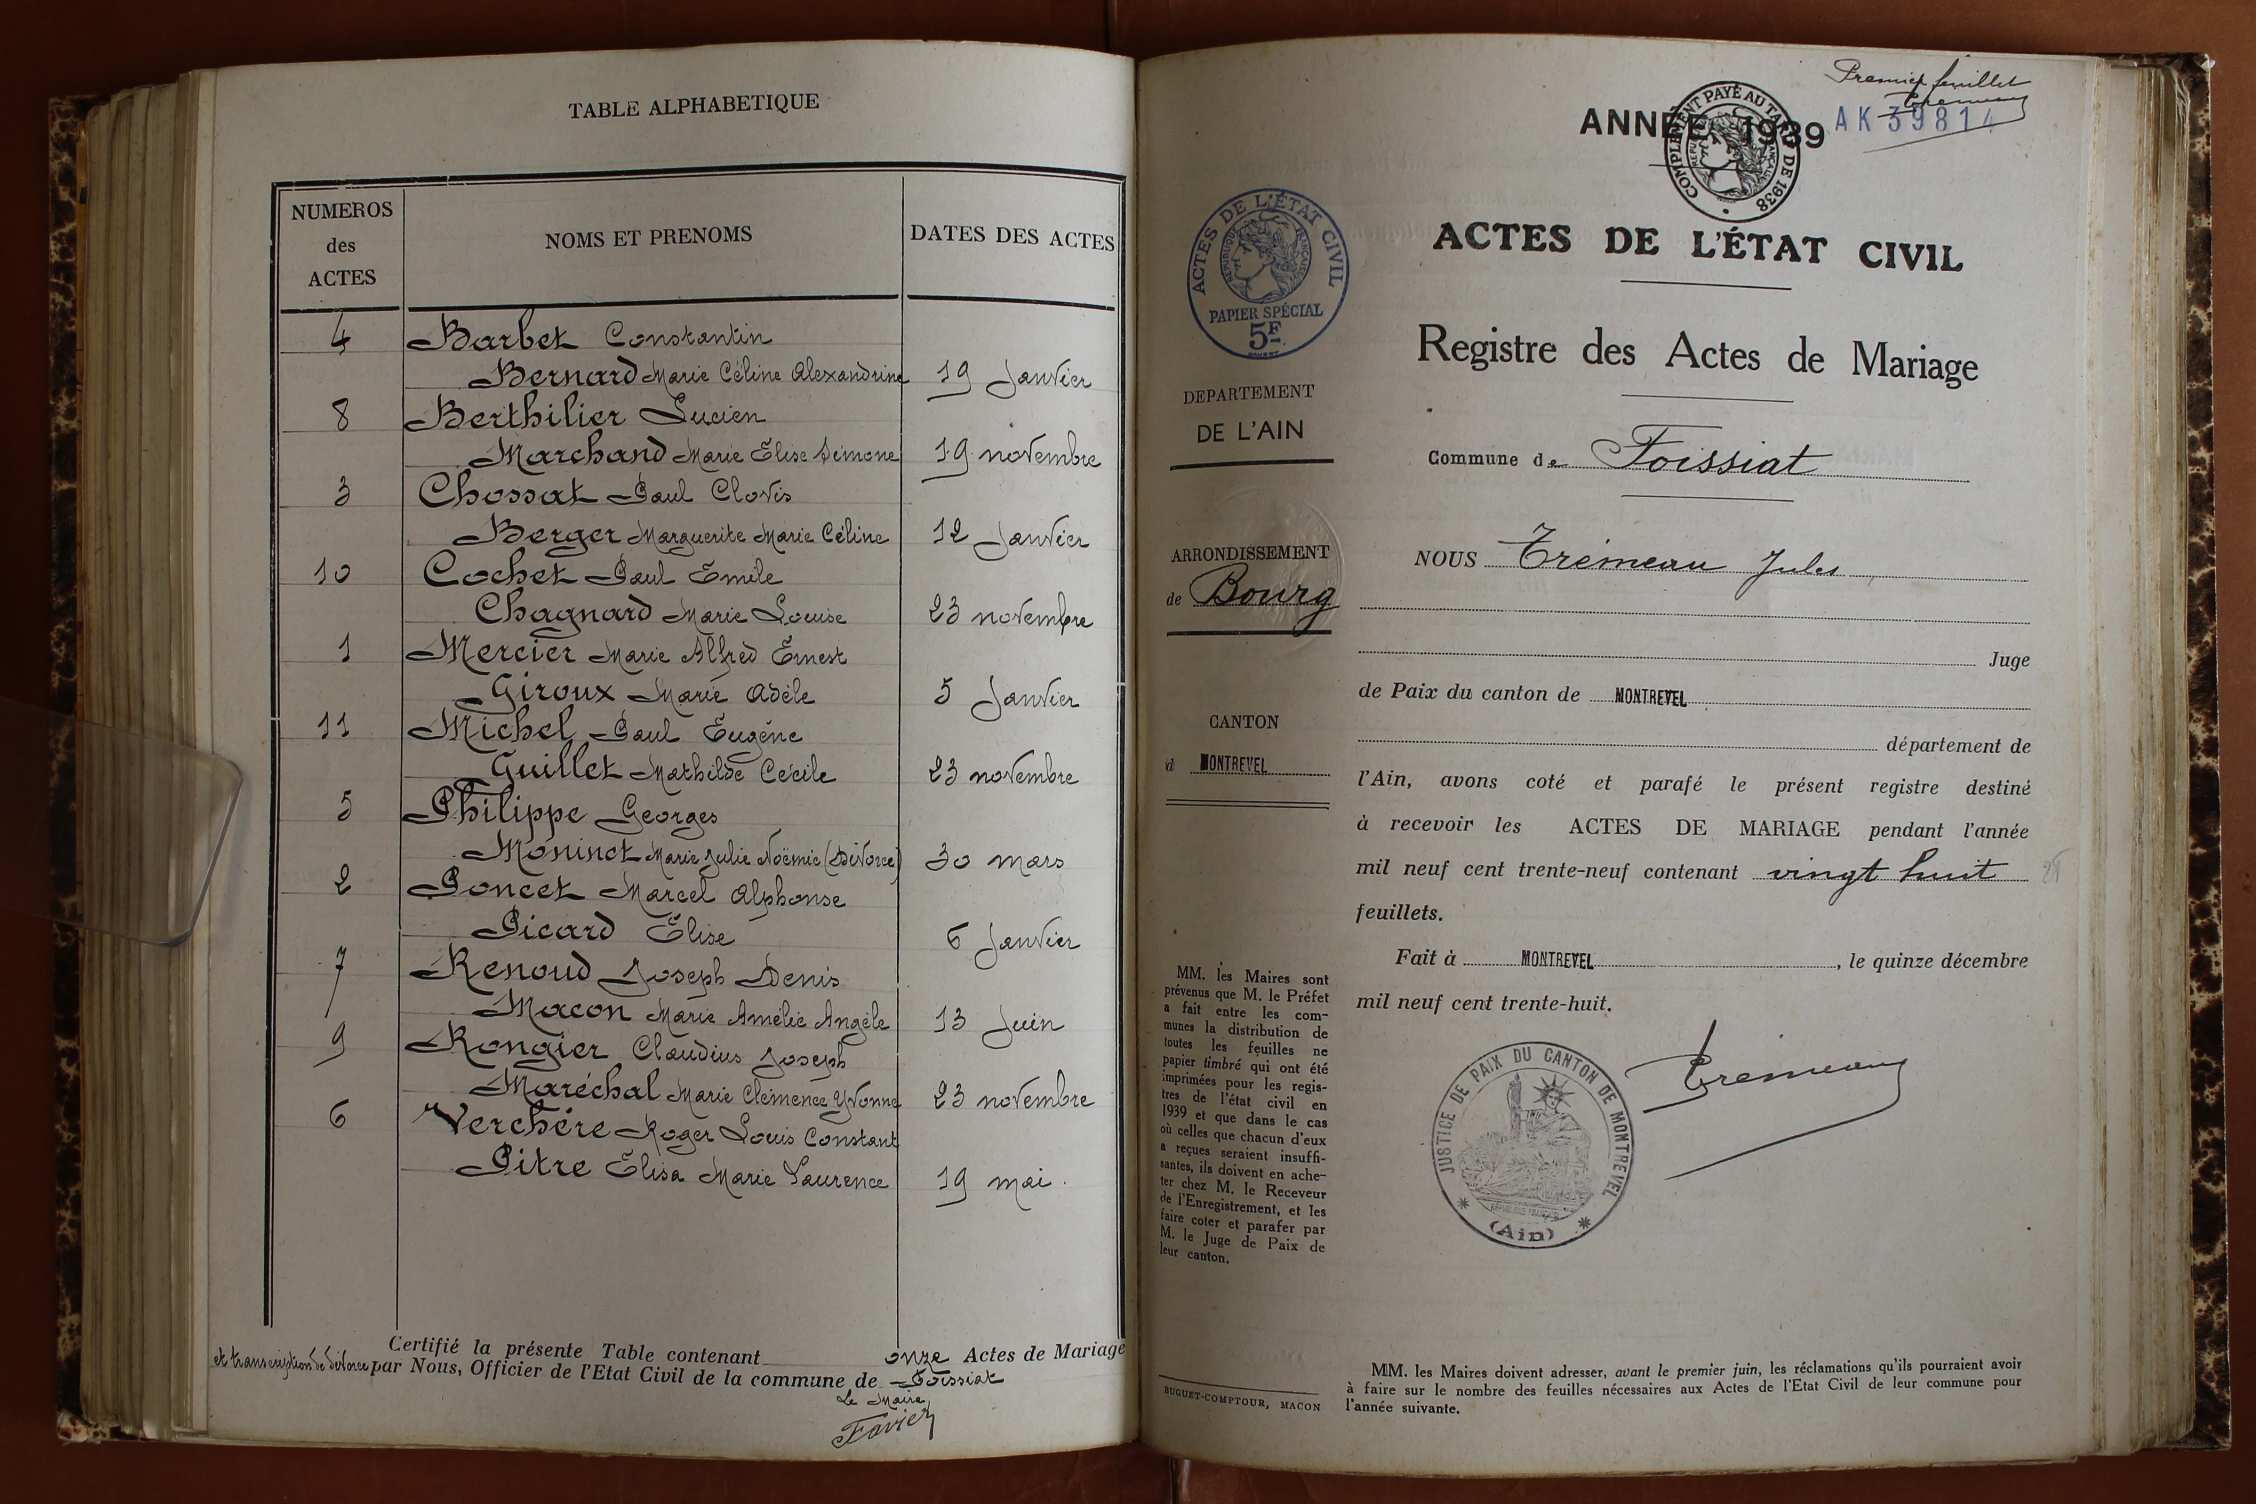 TABLE ALPHABETIQUE
NUMEROS des ACTES
NOMS ET PRENOMS
DATES DES ACTES
4 Barbet Constantin
Bernard Marie Céline Alexandrine 19 Janvier
8 Berthilier Lucien
Marchand Marie Elise Simone 19 novembre
3 Chossat Paul Clovis
Berger Marguerite Marie Céline 12 Janvier
10 Cochet Paul Emile
Chagnard Marie Louise 23 novembre
1 Mercier Marie Alfred Ernest
Giroux Marie Adèle 5 Janvier
11 Michel Paul Eugène
Guillet Mathilde Cécile 23 novembre
5 Philippe Georges
Moninot Marie Julie Noëmie (Divorce) 30 mars
2 Poncet Marcel Alphonse
Picard Elise 6 Janvier
7 Renoud Joseph Denis
Macon Marie Amélie Angèle 13 Juin
9 Rongier Claudius Joseph
Maréchal Marie Clémence Yvonne 23 novembre
6 Verchère Roger Louis Constant
Pitre Elisa Marie Laurence 19 mai.
Certifié la présente Table contenant onze Actes de Mariage
et transcription de divorce par Nous, Officier de l'Etat Civil de la commune de Foissiat
Le Maire
Favier
Premier feuillet
Trémeau
ANNÉE 1939
AK 39814
COMPLÉMENT PAYÉ AU TARIF DE 1938
RÉPUBLIQUE FRANÇAISE
ACTES DE L'ÉTAT CIVIL
RÉPUBLIQUE FRANÇAISE
PAPIER SPÉCIAL
5F
DEPARTEMENT
DE L'AIN
ARRONDISSEMENT
de Bourg
CANTON
d MONTREVEL
MM. les Maires sont
prévenus que M. le Préfet
a fait entre les com-
munes la distribution de
toutes les feuilles ne
papier timbré qui ont été
imprimées pour les regis-
tres de l'état civil en
1939 et que dans le cas
où celles que chacun d'eux
a reçues seraient insuffi-
santes, ils doivent en ache-
ter chez M. le Receveur
de l'Enregistrement, et les
faire coter et parafer par
M. le Juge de Paix de
leur canton.
BUGUET-COMPTOUR, MACON
ACTES DE L'ÉTAT CIVIL
Registre des Actes de Mariage
Commune de Foissiat
NOUS Trémeau Jules
Juge
de Paix du canton de MONTREVEL
département de
l'Ain, avons coté et parafé le présent registre destiné
à recevoir les ACTES DE MARIAGE pendant l'année
mil neuf cent trente-neuf contenant vingt huit
feuillets.
Fait à MONTREVEL, le quinze décembre
mil neuf cent trente-huit.
Trémeau
JUSTICE DE PAIX DU CANTON DE MONTREVEL
(Ain)
MM. les Maires doivent adresser, avant le premier juin, les réclamations qu'ils pourraient avoir
à faire sur le nombre des feuilles nécessaires aux Actes de l'Etat Civil de leur commune pour
l'année suivante.